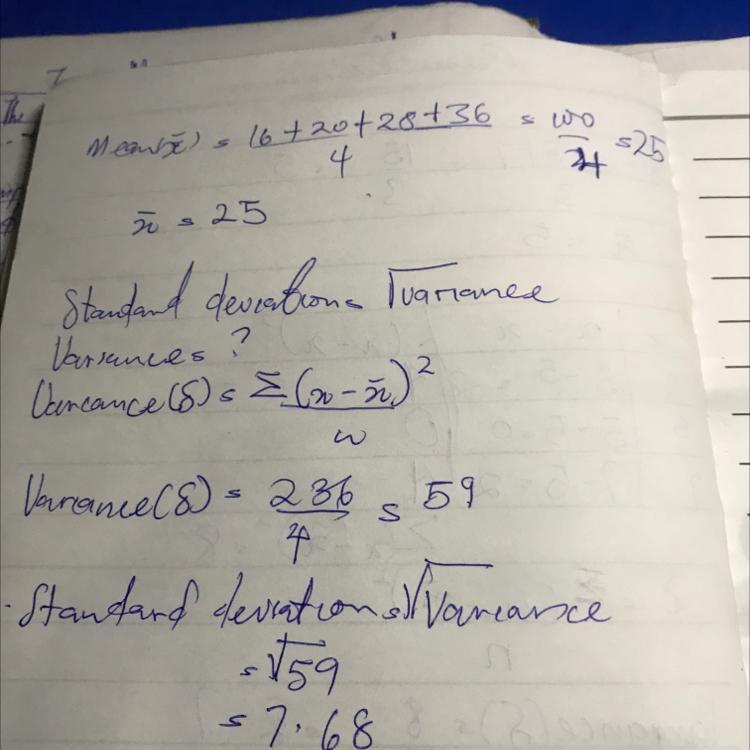 Mean(x̄) = 16+20+28+36/4 = 100/4 = 25
x̄ = 25
Standard deviation = √variance
Variance = ?
Variance(δ) = Σ(x - x̄)²/n
Variance(δ) = 236/4 = 59
Standard deviation = √Variance
= √59
= 7.68